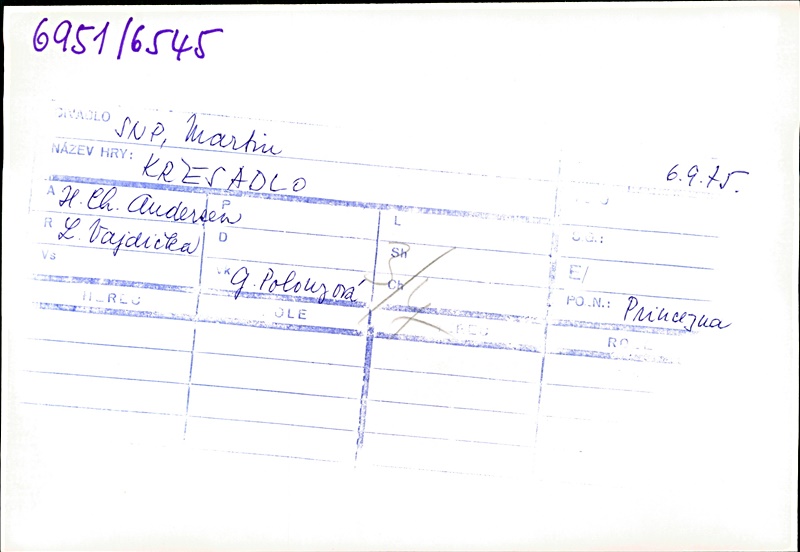 6951/6545
DIVADLO SNP, Martin
NÁZEV HRY: KRZESADLO 6.9.75.
A H. Ch. Andersen P L
R L. Vajdička D Sh
Vs VK G. Polonyová Ch E/
PO.N.: Princezna
HEREC ROLE